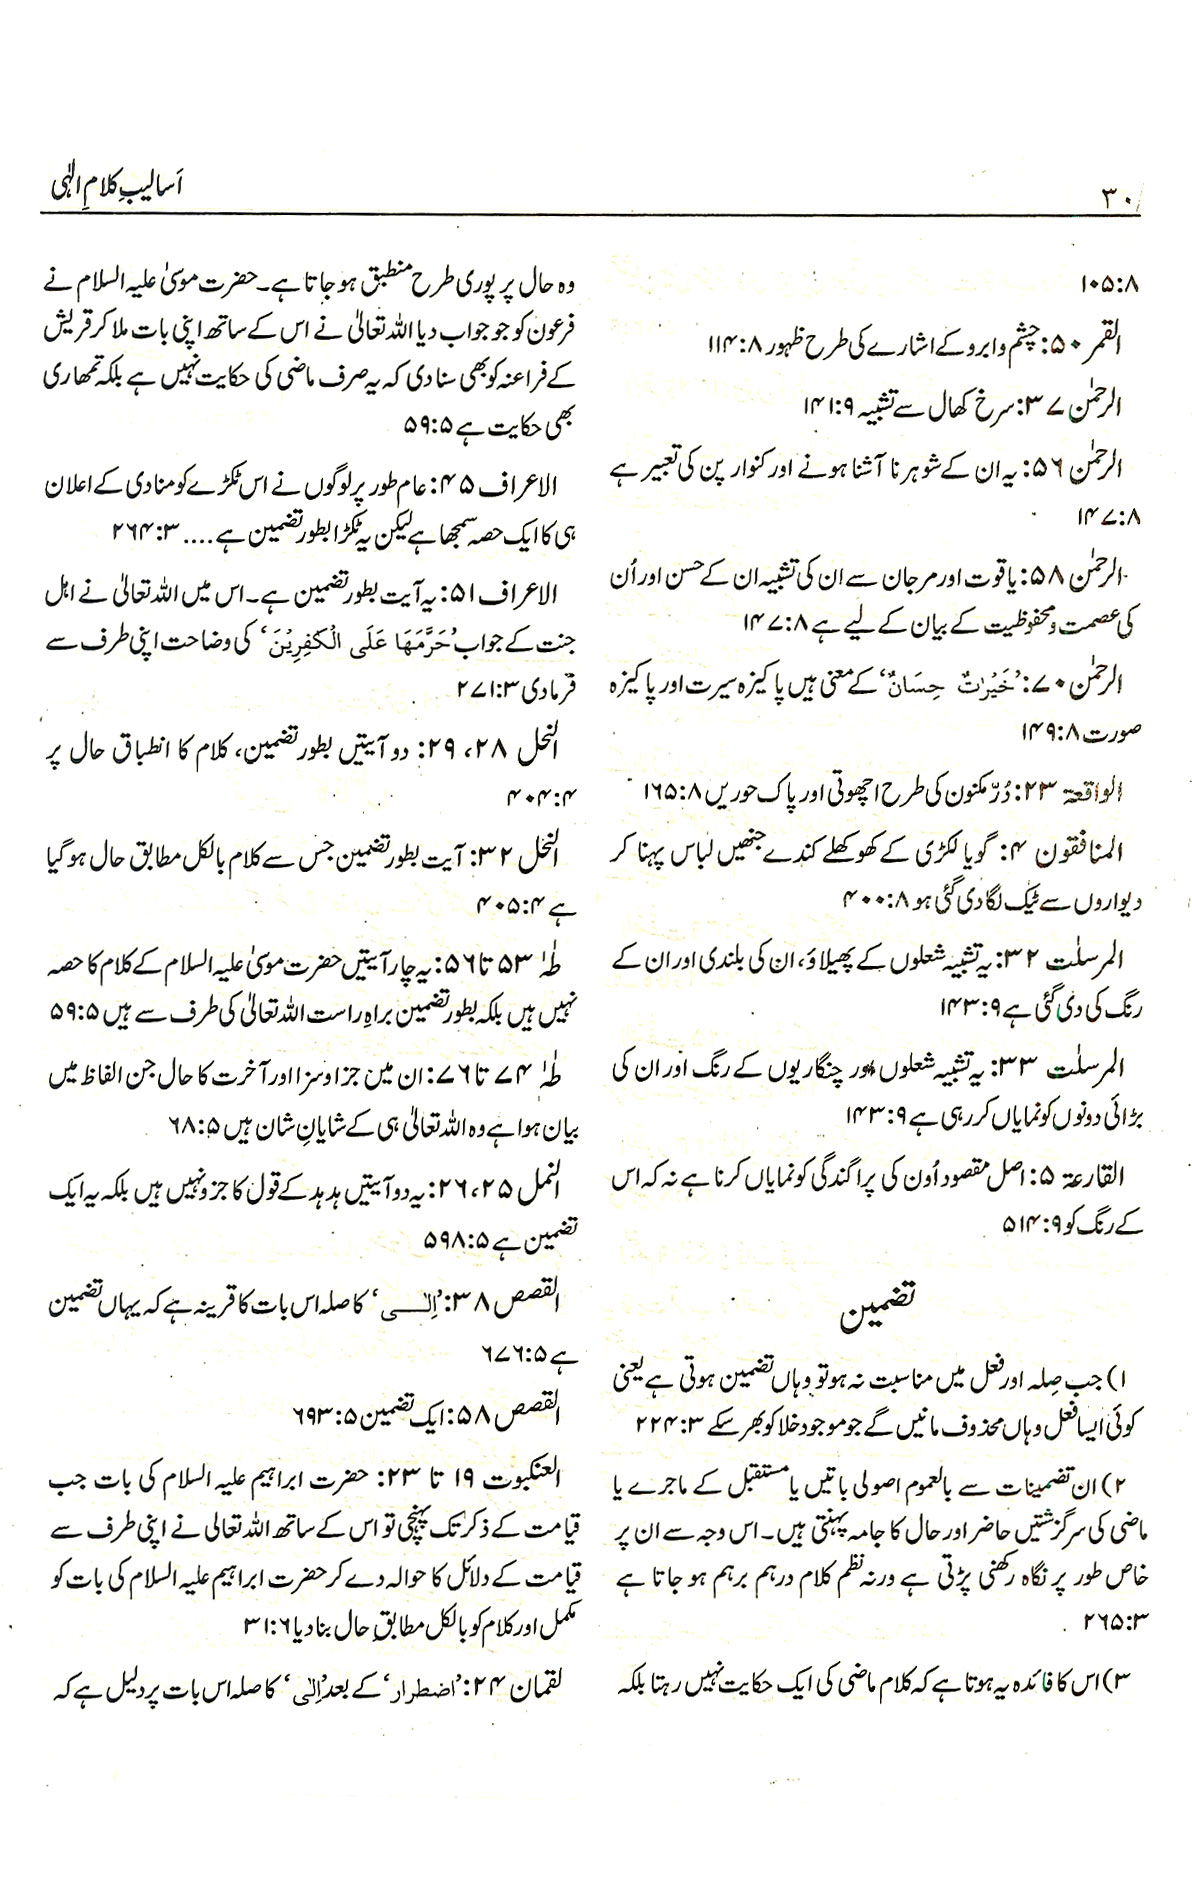 ۳۰
اَسالیبِ کلامِ الٰہی
۱۰۵:۸
القمر ۵۰: چشم و ابرو کے اشارے کی طرح ظہور ۱۱۴:۸
الرحمٰن ۳۷: سرخ کھال سے تشبیہ ۱۴۱:۹
الرحمٰن ۵۶: یہ ان کے شوہر نا آشنا ہونے اور کنوار پن کی تعبیر ہے
۱۴۷:۸
الرحمٰن ۵۸: یاقوت اور مرجان سے ان کی تشبیہ ان کے حسن اور اُن
کی عصمت و محفوظیت کے بیان کے لیے ہے ۱۴۷:۸
الرحمٰن ۷۰: ’خَیْرٰتٌ حِسَانٌ‘ کے معنی ہیں پاکیزہ سیرت اور پاکیزہ
صورت ۱۴۹:۸
الواقعۃ ۲۳: دُرِّ مکنون کی طرح اچھوتی اور پاک حوریں ۱۶۵:۸
المنافقون ۴: گویا لکڑی کے کھوکھلے کندے جنھیں لباس پہنا کر
دیواروں سے ٹیک لگا دی گئی ہو ۴۰۰:۸
المرسلٰت ۳۲: یہ تشبیہ شعلوں کے پھیلاؤ، ان کی بلندی اور ان کے
رنگ کی دی گئی ہے ۱۴۳:۹
المرسلٰت ۳۳: یہ تشبیہ شعلوں اور چنگاریوں کے رنگ اور ان کی
بڑائی دونوں کو نمایاں کر رہی ہے ۱۴۳:۹
القارعۃ ۵: اصل مقصود اُون کی پراگندگی کو نمایاں کرنا ہے نہ کہ اس
کے رنگ کو ۵۱۴:۹
تضمین
۱) جب صِلہ اور فعل میں مناسبت نہ ہو تو وہاں تضمین ہوتی ہے یعنی
کوئی ایسا فعل وہاں محذوف مانیں گے جو موجود خلا کو بھر سکے ۲۲۴:۳
۲) ان تضمینات سے بالعموم اصولی باتیں یا مستقبل کے ماجرے یا
ماضی کی سرگزشتیں حاضر اور حال کا جامہ پہنتی ہیں۔ اس وجہ سے ان پر
خاص طور پر نگاہ رکھنی پڑتی ہے ورنہ نظم کلام درہم برہم ہو جاتا ہے
۲۶۵:۳
۳) اس کا فائدہ یہ ہوتا ہے کہ کلام ماضی کی ایک حکایت نہیں رہتا بلکہ
وہ حال پر پوری طرح منطبق ہو جاتا ہے۔ حضرت موسیٰ علیہ السلام نے
فرعون کو جو جواب دیا اللہ تعالیٰ نے اس کے ساتھ اپنی بات ملا کر قریش
کے فراعنہ کو بھی سنا دی کہ یہ صرف ماضی کی حکایت نہیں ہے بلکہ تمھاری
بھی حکایت ہے ۵۹:۵
الاعراف ۴۵: عام طور پر لوگوں نے اس ٹکڑے کو منادی کے اعلان
ہی کا ایک حصہ سمجھا ہے لیکن یہ ٹکڑا بطور تضمین ہے .... ۲۶۴:۳
الاعراف ۵۱: یہ آیت بطور تضمین ہے۔ اس میں اللہ تعالیٰ نے اہل
جنت کے جواب ’حَرَّمَهَا عَلَى الْكٰفِرِيْنَ‘ کی وضاحت اپنی طرف سے
فرما دی ۲۷۱:۳
النحل ۲۸، ۲۹: دو آیتیں بطور تضمین، کلام کا انطباق حال پر
۴۰۴:۴
النحل ۳۲: آیت بطور تضمین جس سے کلام بالکل مطابق حال ہو گیا
ہے ۴۰۵:۴
طٰہٰ ۵۳ تا ۵۶: یہ چار آیتیں حضرت موسیٰ علیہ السلام کے کلام کا حصہ
نہیں ہیں بلکہ بطور تضمین براہِ راست اللہ تعالیٰ کی طرف سے ہیں ۵۹:۵
طٰہٰ ۷۴ تا ۷۶: ان میں جزا و سزا اور آخرت کا حال جن الفاظ میں
بیان ہوا ہے وہ اللہ تعالیٰ ہی کے شایانِ شان ہیں ۶۸:۵
النمل ۲۵، ۲۶: یہ دو آیتیں ہدہد کے قول کا جزو نہیں ہیں بلکہ یہ ایک
تضمین ہے ۵۹۸:۵
القصص ۳۸: ’اِلٰـــی‘ کا صلہ اس بات کا قرینہ ہے کہ یہاں تضمین
ہے ۶۷۶:۵
القصص ۵۸: ایک تضمین ۶۹۳:۵
العنکبوت ۱۹ تا ۲۳: حضرت ابراہیم علیہ السلام کی بات جب
قیامت کے ذکر تک پہنچی تو اس کے ساتھ اللہ تعالیٰ نے اپنی طرف سے
قیامت کے دلائل کا حوالہ دے کر حضرت ابراہیم علیہ السلام کی بات کو
مکمل اور کلام کو بالکل مطابقِ حال بنا دیا ۳۱:۶
لقمان ۲۴: ’اضطرار‘ کے بعد ’اِلٰی‘ کا صلہ اس بات پر دلیل ہے کہ